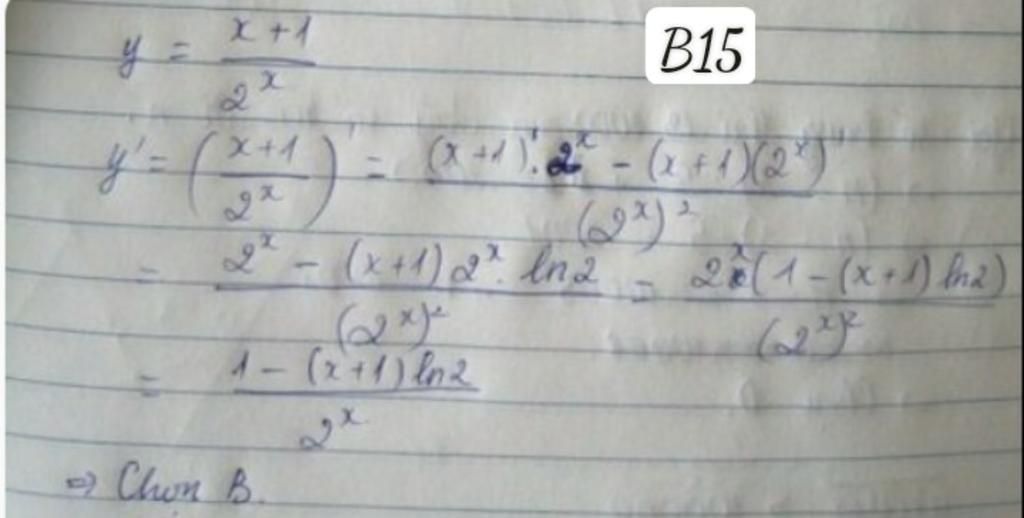 y = \frac{x+1}{2^x}
B15
y' = \left(\frac{x+1}{2^x}\right)' = \frac{(x+1)'.2^x - (x+1)(2^x)'}{(2^x)^2}
= \frac{2^x - (x+1)2^x.ln2}{(2^x)^2} = \frac{2^x(1-(x+1)ln2)}{(2^x)^2}
= \frac{1-(x+1)ln2}{2^x}
⇒ Chọn B.